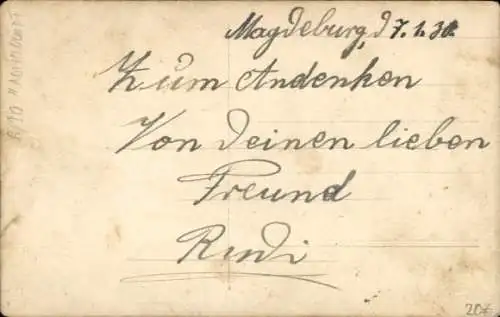 Magdeburg, d 7.1.30.
Zum Andenken
Von Deinen lieben
Freund
Rudi
20€